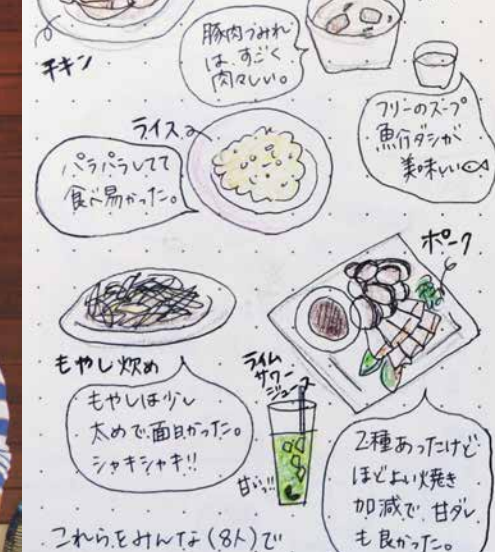 チキン
豚肉つみれ
は、すごく
肉々しい。
フリーのスープ
魚介ダシが
美味しい
ライス
パラパラしてて
食べ易かった。
ポーク
もやし炒め
もやしは少し
太めで面白かった。
シャキシャキ!!
ライム
サワー
ジュース
甘いっ!!
2種あったけど
ほどよい焼き
加減で甘ダレ
も良かった。
これらをみんな(8人)で